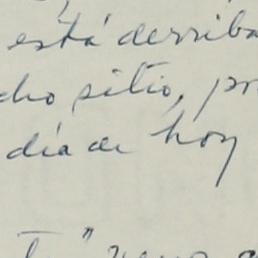 está derriba
cho sitio, pr
día de hoy